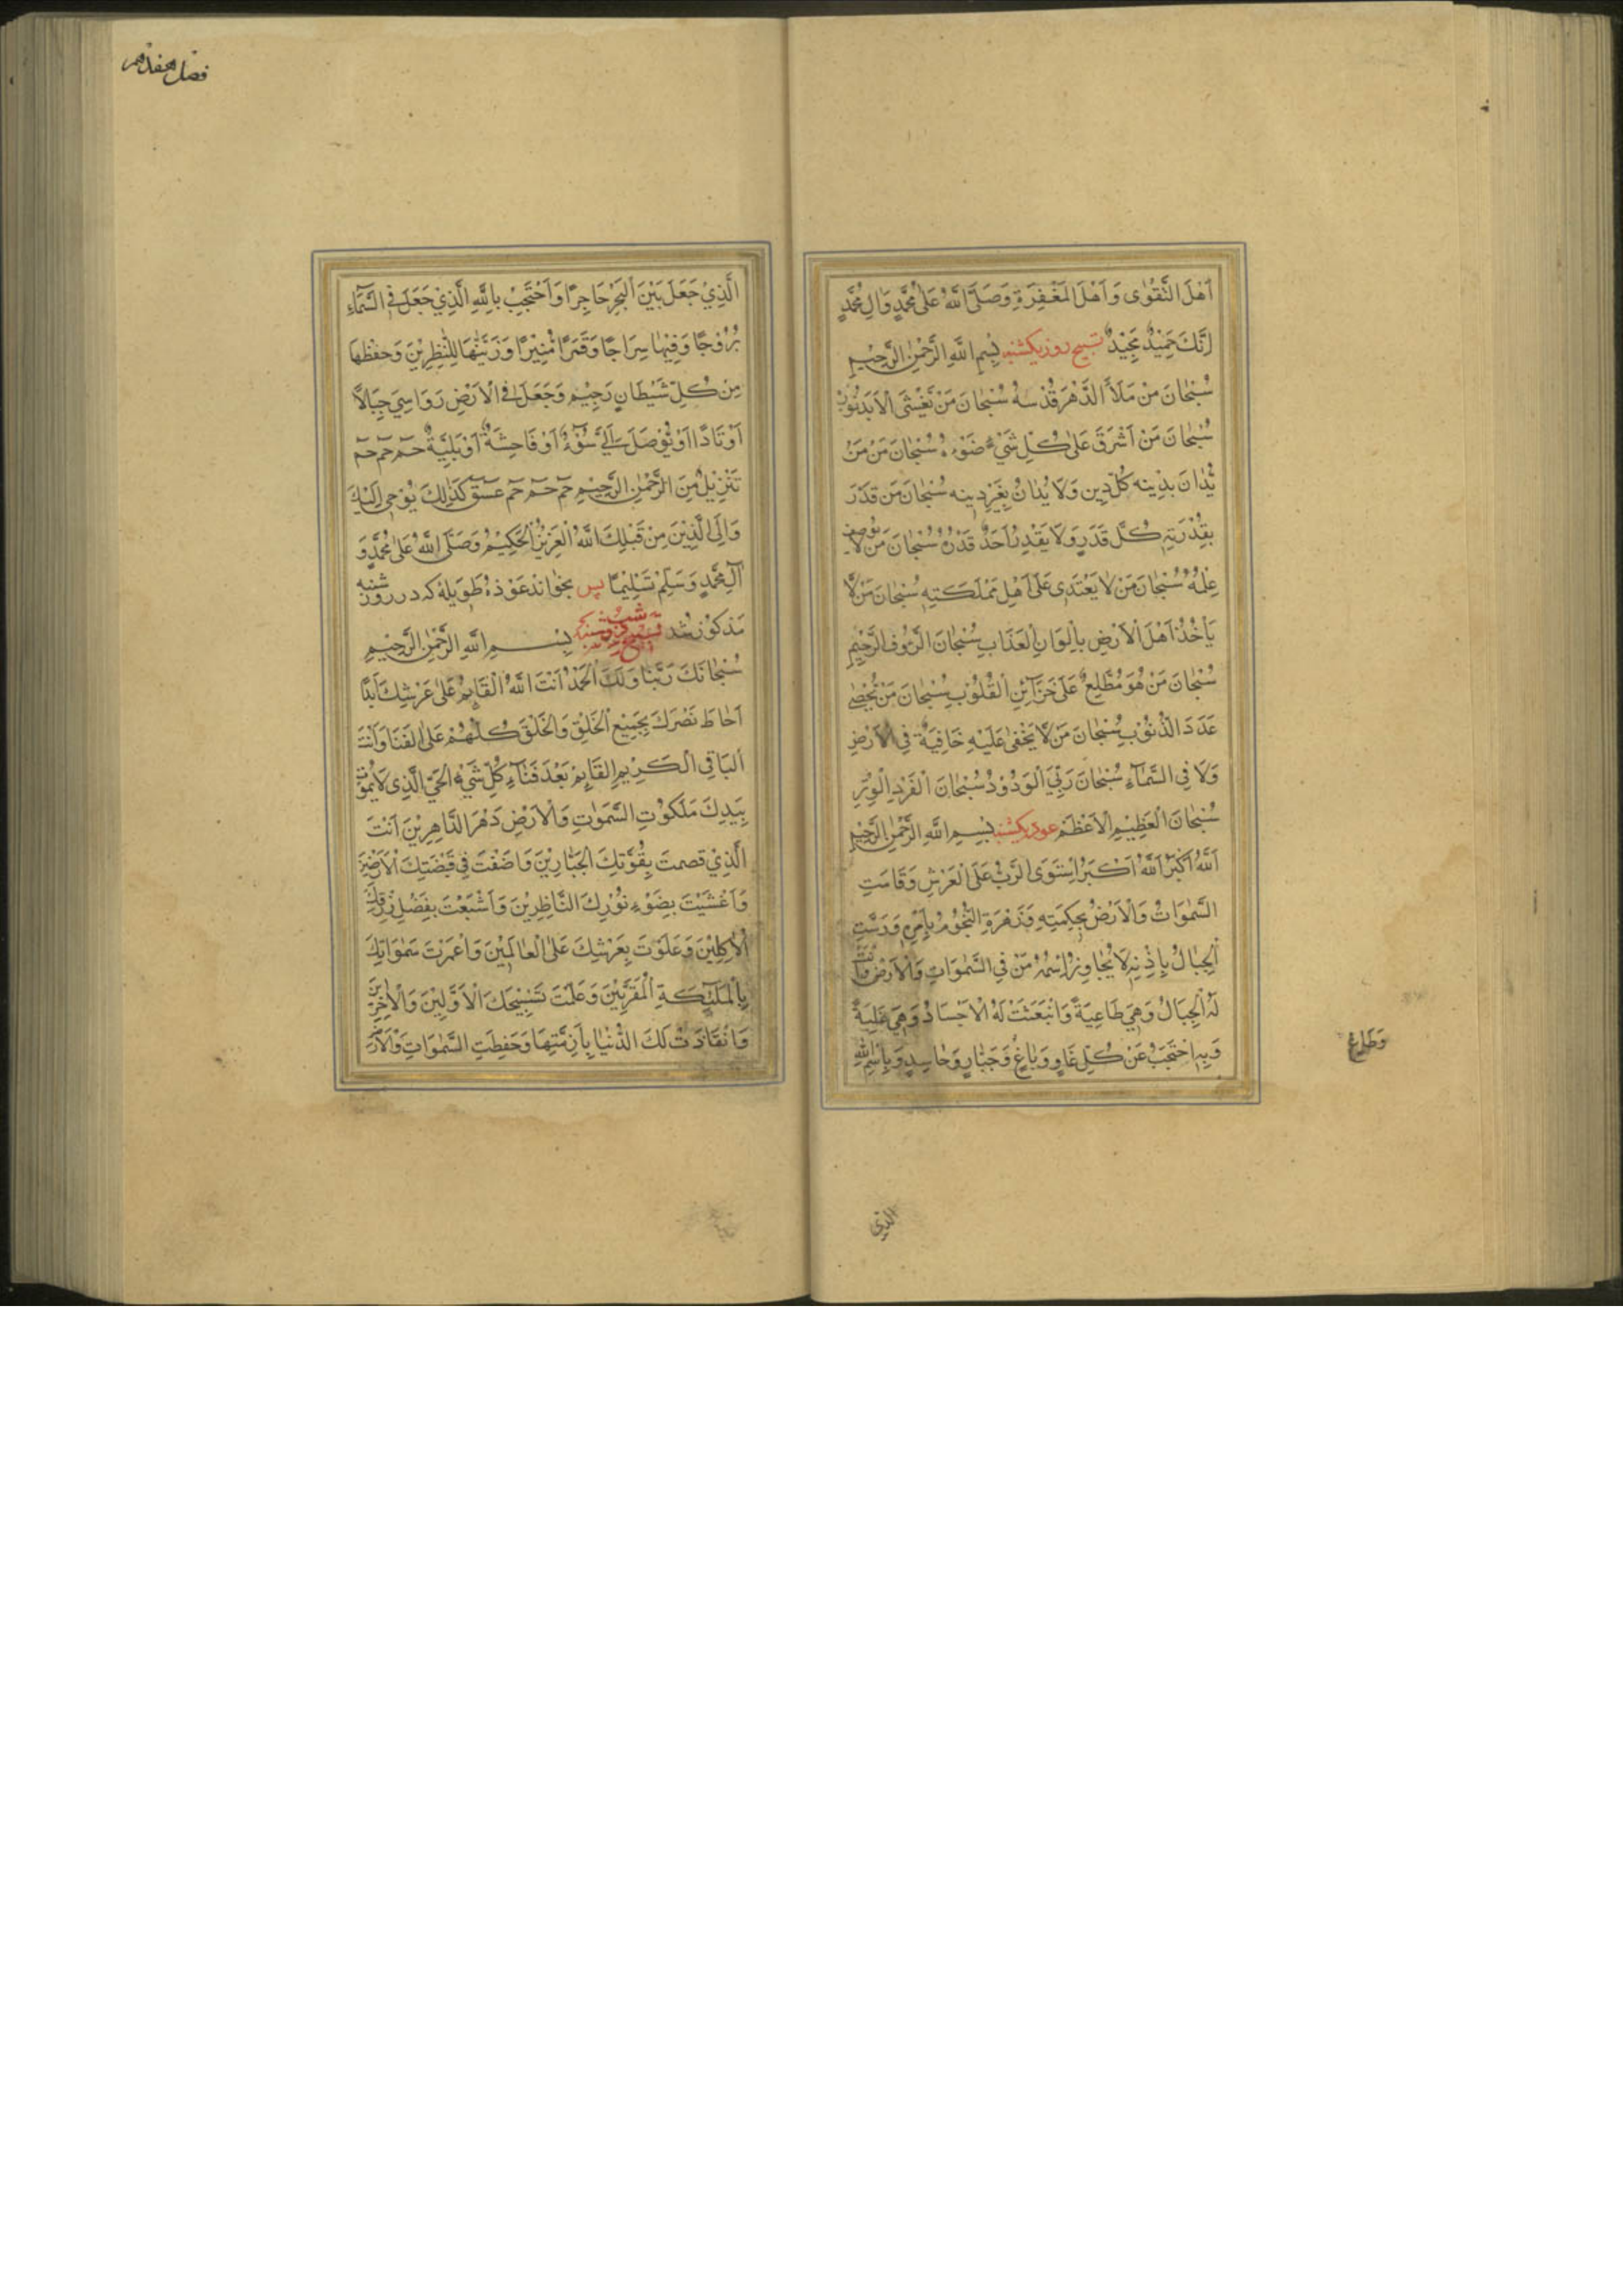 اَهْلَ التَّقْوٰى وَاَهْلَ المَغْفِرَةِ وَصَلَّى اللّٰهُ عَلٰى مُحَمَّدٍ وَالِ مُحَمَّدٍ
اِنَّكَ حَمِيْدٌ مَجِيْدٌ تسبيح روز يكشنبه بِسْمِ اللّٰهِ الرَّحْمٰنِ الرَّحِيْمِ
سُبْحَانَ مَنْ مَلَأَ الدَّهْرَ قُدْسُهُ سُبْحَانَ مَنْ تَغْشَى الْاَبَدَ نُوْرُهُ
سُبْحَانَ مَنْ اَشْرَقَ عَلٰى كُلِّ شَيْءٍ ضَوْءُهُ سُبْحَانَ مَنْ مَنْ
يُدَانَ بِدِيْنِهِ كُلُّ دِيْنٍ وَلَا يُدَانُ بِغَيْرِ دِيْنِهِ سُبْحَانَ مَنْ قَدَّرَ
بِقُدْرَتِهِ كُلَّ قَدَرٍ وَلَا يَقْدِرُ اَحَدٌ قَدْرَهُ سُبْحَانَ مَنْ لَا يُوْصَفُ
عِلْمُهُ سُبْحَانَ مَنْ لَا يَعْتَدِى عَلٰى اَهْلِ مَمْلَكَتِهِ سُبْحَانَ مَنْ لَا
يَأْخُذُ اَهْلَ الْاَرْضِ بِاَلْوَانِ الْعَذَابِ سُبْحَانَ الرَّؤُفِ الرَّحِيْمِ
سُبْحَانَ مَنْ هُوَ مُطَّلِعٌ عَلٰى خَزَآئِنِ الْقُلُوْبِ سُبْحَانَ مَنْ يُحْصِيْ
عَدَدَ الذُّنُوْبِ سُبْحَانَ مَنْ لَا يَخْفٰى عَلَيْهِ خَافِيَةٌ فِى الْاَرْضِ
وَلَا فِى السَّمَآءِ سُبْحَانَ رَبِّيَ الْوَدُوْدُ سُبْحَانَ الْفَرْدِ الْوِتْرِ
سُبْحَانَ الْعَظِيْمِ الْاَعْظَمِ عوذ يكشنبه بِسْمِ اللّٰهِ الرَّحْمٰنِ الرَّحِيْمِ
اَللّٰهُ اَكْبَرُ اَللّٰهُ اَكْبَرُ اسْتَوَى الرَّبُّ عَلَى الْعَرْشِ وَقَامَتِ
السَّمٰوَاتُ وَالْاَرْضُ بِحِكْمَتِهِ وَزَهْرَةِ النُّجُوْمُ بِاَمْرِهِ وَرَسَتِ
الْجِبَالُ بِاِذْنِهِ لَا يُجَاوِزُ اسْمُهُ مَنْ فِى السَّمٰوَاتِ وَالْاَرْضِ دَانَتْ
لَهُ الْجِبَالُ وَهِيَ طَاعِيَةٌ وَانْبَعَثَتْ لَهُ الْاَجْسَادُ وَهِيَ
وَبِهِ اَحْتَجِبُ عَنْ كُلِّ غَاوٍ وَبَاغٍ وَجَبَّارٍ وَحَاسِدٍ وَبِاسْمِ اللّٰهِ
وَطَاغٍ
الذى
فصل هفدهم
الَّذِيْ جَعَلَ بَيْنَ الْبَحْرِ حَاجِزًا وَاَحْتَجِبُ بِاللّٰهِ الَّذِيْ جَعَلَ فِى السَّمَآءِ
بُرُوْجًا وَفِيْهَا سِرَاجًا وَقَمَرًا مُنِيْرًا وَزَيَّنَّهَا لِلنّٰظِرِيْنَ وَحَفِظَهَا
مِنْ كُلِّ شَيْطَانٍ رَجِيْمٍ وَجَعَلَ فِى الْاَرْضِ رَوَاسِيَ جِبَالًا
اَوْتَادًا اَوْ يُوْصَلَ اِلَيَّ سُوْءٌ اَوْ فَاحِشَةٌ اَوْ بَلِيَّةٌ حٰم حٰم حٰم
تَنْزِيْلٌ مِنَ الرَّحْمٰنِ الرَّحِيْمِ حٰم حٰم حٰم عٓسٓقٓ كَذٰلِكَ يُوْحِى اِلَيْكَ
وَاِلَى الَّذِيْنَ مِنْ قَبْلِكَ اللّٰهُ الْعَزِيْزُ الْحَكِيْمُ وَصَلَّى اللّٰهُ عَلٰى مُحَمَّدٍ وَ
آلِ مُحَمَّدٍ وَسَلِّمْ تَسْلِيْمًا پس بخواند عوذهٔ طويله كه در روز شنبه
مذكور شد تسبيح شب دوشنبه بِسْمِ اللّٰهِ الرَّحْمٰنِ الرَّحِيْمِ
سُبْحَانَكَ رَبَّنَا وَلَكَ الْحَمْدُ اَنْتَ اللّٰهُ الْقَائِمُ عَلٰى عَرْشِكَ اَبَدًا
اَحَاطَ بَصَرُكَ بِجَمِيْعِ الْخَلْقِ وَالْخَلْقُ كُلُّهُمْ عَلَى الْفَنَا وَاَنْتَ
الْبَاقِى الْكَرِيْمِ الْقَائِمِ بَعْدَ فَنَاءِ كُلِّ شَيْءٍ الْحَيِّ الَّذِى لَا يَمُوْتُ
بِيَدِكَ مَلَكُوْتُ السَّمٰوٰتِ وَالْاَرْضِ دَهْرَ الدَّاهِرِيْنَ اَنْتَ
الَّذِيْ قصمت بِقُوَّتِكَ الْجَبَّارِيْنَ وَاَضَفْتَ فِى قَبْضَتِكَ الْاَرَضِيْنَ
وَاَغْشَيْتَ بِضَوْءِ نُوْرِكَ النَّاظِرِيْنَ وَاَشْبَعْتَ بِفَضْلِ رِزْقِكَ
الْاٰكِلِيْنَ وَعَلَوْتَ بِعَرْشِكَ عَلَى الْعَالَمِيْنَ وَاَعْمَرْتَ سَمٰوَاتِكَ
بِالْمَلٰٓئِكَةِ الْمُقَرَّبِيْنَ وَعَلَّمْتَ تَسْبِيْحَكَ الْاَوَّلِيْنَ وَالْاٰخِرِيْنَ
وَانْقَادَتْ لَكَ الدُّنْيَا بِاَزِمَّتِهَا وَحَفِظْتَ السَّمٰوَاتِ وَالْاَرْضَ